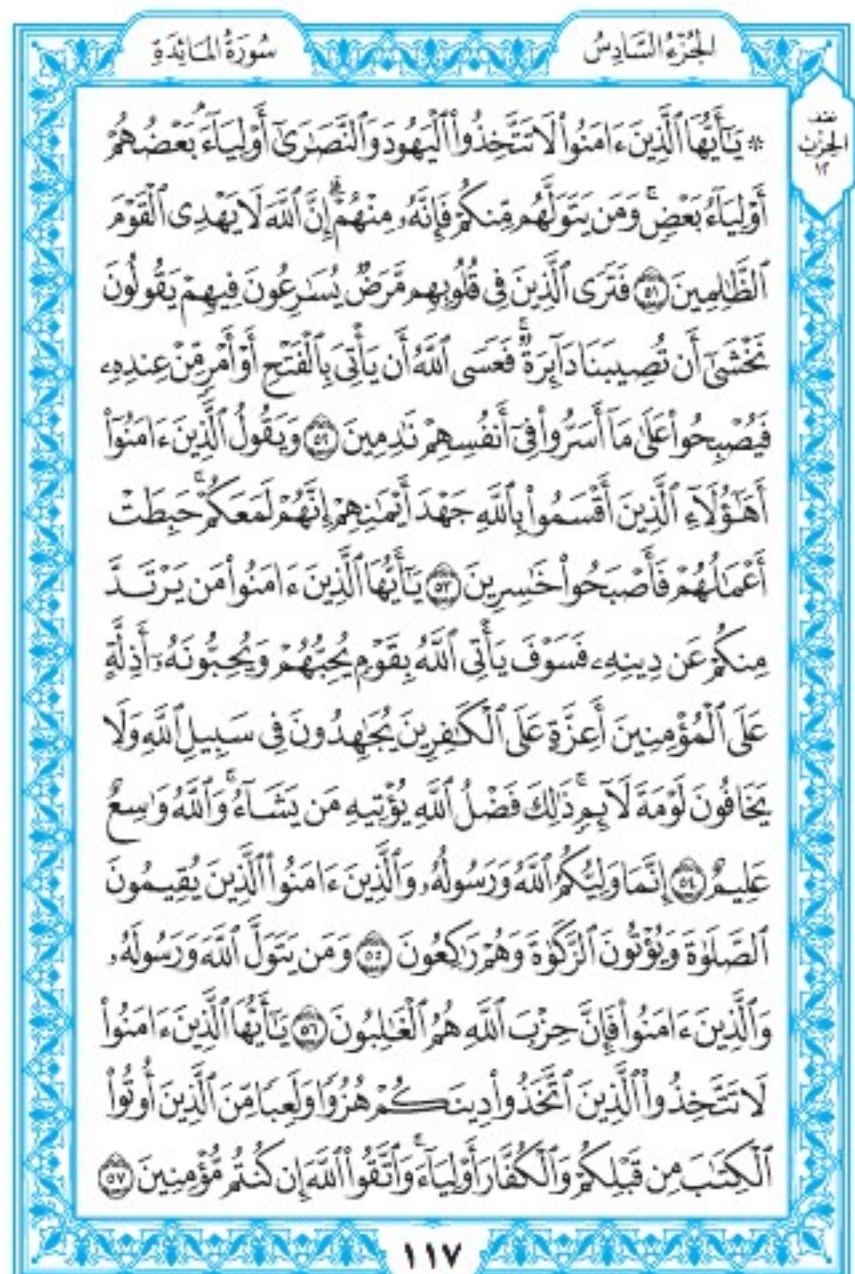 سُورَةُ المَائِدَةِ
الجُزْءُ السَّادِسُ
نصف
الحِزْب
١٢
۞ يَٰٓأَيُّهَا ٱلَّذِينَ ءَامَنُواْ لَا تَتَّخِذُواْ ٱلْيَهُودَ وَٱلنَّصَٰرَىٰٓ أَوْلِيَآءَۘ بَعْضُهُمْ
أَوْلِيَآءُ بَعْضٍۚ وَمَن يَتَوَلَّهُم مِّنكُمْ فَإِنَّهُۥ مِنْهُمْۗ إِنَّ ٱللَّهَ لَا يَهْدِى ٱلْقَوْمَ
ٱلظَّٰلِمِينَ ٥١ فَتَرَى ٱلَّذِينَ فِى قُلُوبِهِم مَّرَضٌ يُسَٰرِعُونَ فِيهِمْ يَقُولُونَ
نَخْشَىٰٓ أَن تُصِيبَنَا دَآئِرَةٌۚ فَعَسَى ٱللَّهُ أَن يَأْتِىَ بِٱلْفَتْحِ أَوْ أَمْرٍ مِّنْ عِندِهِۦ
فَيُصْبِحُواْ عَلَىٰ مَآ أَسَرُّواْ فِىٓ أَنفُسِهِمْ نَٰدِمِينَ ٥٢ وَيَقُولُ ٱلَّذِينَ ءَامَنُوٓاْ
أَهَٰٓؤُلَآءِ ٱلَّذِينَ أَقْسَمُواْ بِٱللَّهِ جَهْدَ أَيْمَٰنِهِمْ إِنَّهُمْ لَمَعَكُمْۚ حَبِطَتْ
أَعْمَٰلُهُمْ فَأَصْبَحُواْ خَٰسِرِينَ ٥٣ يَٰٓأَيُّهَا ٱلَّذِينَ ءَامَنُواْ مَن يَرْتَدَّ
مِنكُمْ عَن دِينِهِۦ فَسَوْفَ يَأْتِى ٱللَّهُ بِقَوْمٍ يُحِبُّهُمْ وَيُحِبُّونَهُۥٓ أَذِلَّةٍ
عَلَى ٱلْمُؤْمِنِينَ أَعِزَّةٍ عَلَى ٱلْكَٰفِرِينَ يُجَٰهِدُونَ فِى سَبِيلِ ٱللَّهِ وَلَا
يَخَافُونَ لَوْمَةَ لَآئِمٍۚ ذَٰلِكَ فَضْلُ ٱللَّهِ يُؤْتِيهِ مَن يَشَآءُۚ وَٱللَّهُ وَٰسِعٌ
عَلِيمٌ ٥٤ إِنَّمَا وَلِيُّكُمُ ٱللَّهُ وَرَسُولُهُۥ وَٱلَّذِينَ ءَامَنُواْ ٱلَّذِينَ يُقِيمُونَ
ٱلصَّلَوٰةَ وَيُؤْتُونَ ٱلزَّكَوٰةَ وَهُمْ رَٰكِعُونَ ٥٥ وَمَن يَتَوَلَّ ٱللَّهَ وَرَسُولَهُۥ
وَٱلَّذِينَ ءَامَنُواْ فَإِنَّ حِزْبَ ٱللَّهِ هُمُ ٱلْغَٰلِبُونَ ٥٦ يَٰٓأَيُّهَا ٱلَّذِينَ ءَامَنُواْ
لَا تَتَّخِذُواْ ٱلَّذِينَ ٱتَّخَذُواْ دِينَكُمْ هُزُوًا وَلَعِبًا مِّنَ ٱلَّذِينَ أُوتُواْ
ٱلْكِتَٰبَ مِن قَبْلِكُمْ وَٱلْكُفَّارَ أَوْلِيَآءَۚ وَٱتَّقُواْ ٱللَّهَ إِن كُنتُم مُّؤْمِنِينَ ٥٧
١١٧